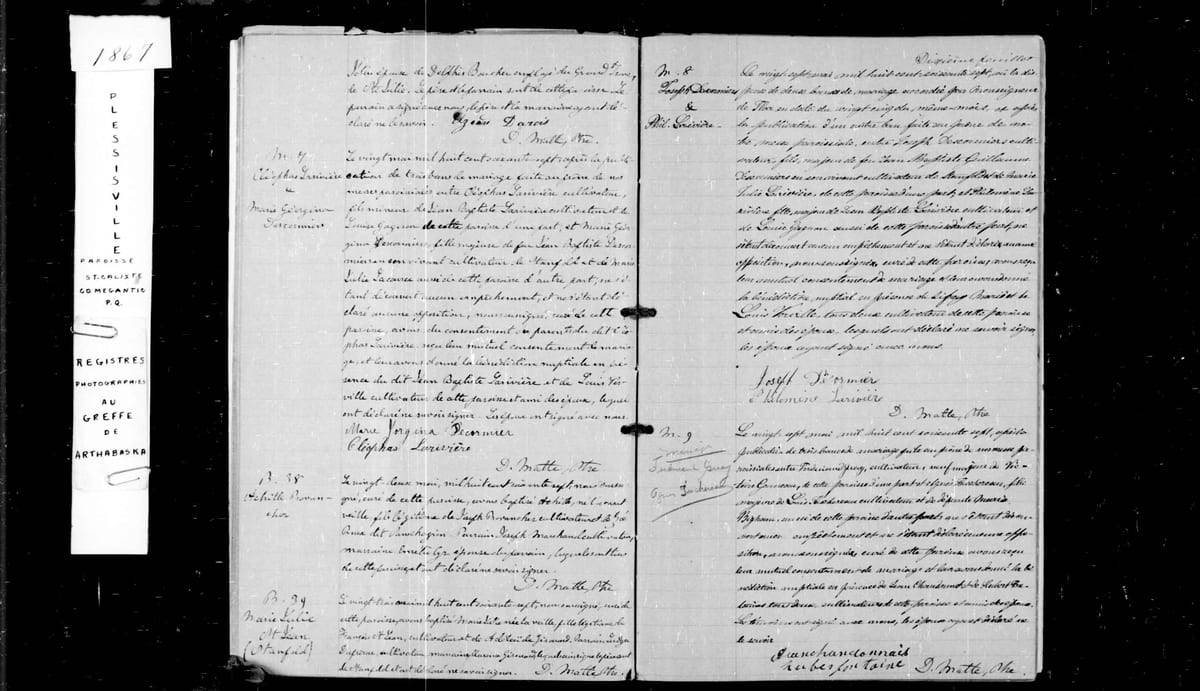 1867
PLESSISVILLE
PAROISSE
ST-CALISTE
CO.MEGANTIC
P.Q.
REGISTRES
PHOTOGRAPHIES
AU
GREFFE
DE
ARTHABASKA
épouse de Boucher employé du Grand Tronc,
de Ste Julie. Le père et le parrain sont de cette paroisse. Le
parrain a signé avec nous, le père et la marraine ayant dé-
claré ne le savoir.
D. Matte, Ptre.
M. 7
Cléophas Larivière
&
Marie Géorgina
Descormier
Le vingt mai mil huit cent soixante sept, après la publi-
cation de trois bans de mariage faite au prône de nos
messes paroissiales entre Cléophas Larivière cultivateur,
fils mineur de Jean Baptiste Larivière cultivateur et de
Louise Gagnon de cette paroisse d'une part, et Marie Géor-
gina Descormier, fille majeure de feu Jean Baptiste Descor-
mier en son vivant cultivateur de Stanfold et de Marie
Julie aussi de cette paroisse d'autre part, ne s'é-
tant découvert aucun empêchement, et ne s'étant dé-
claré aucune opposition, nous soussigné, curé de cette
paroisse, avons, du consentement des parents du dit Cléo-
phas Larivière, reçu leur mutuel consentement de maria-
ge, et leur avons donné la bénédiction nuptiale en pré-
sence du dit Jean Baptiste Larivière et de Louis
ville cultivateur de cette paroisse et ami des époux, lesquels
ont déclaré ne savoir signer. Les époux ont signé avec nous.
Marie Jorgina Decormier
Cléophas Larivière
D. Matte, Ptre
B. 38
Achille Provan-
cher
Le vingt deux mai, mil huit cent soixante sept, nous soussi-
gné, curé de cette paroisse, avons baptisé Achille, né la
veille, fils légitime de Joseph Provancher, cultivateur et de
Parrain Joseph Marchand cultivateur,
marraine épouse du parrain, lesquels
de cette paroisse, et ont déclaré ne savoir signer.
D. Matte, Ptre
B. 39
Marie Julie
St Jean
(Stanfold)
Le vingt trois mai mil huit cent soixante sept, nous soussigné, curé de
cette paroisse, avons baptisé Marie Julie née la veille, fille légitime de
François St Jean, cultivateur et de Girouard. Parrain
cultivateur, marraine
de Stanfold et ont déclaré ne savoir signer. D. Matte, Ptre.
Dixième feuillet
M. 8
Joseph Descormiers
&
Phil. Larivière
Le vingt sept mai mil huit cent soixante sept, vu la dis-
pense de deux bans de mariage accordée par Monseigneur
de en date du vingt cinq du même mois, et après
la publication d'un autre ban faite au prône de no-
tre messe paroissiale, entre Joseph Descormiers culti-
vateur, fils majeur de feu Jean Baptiste Guillaume
Descormiers en son vivant cultivateur de Stanfold et de Marie
Julie de cette paroisse d'une part, et Philomène La-
rivière fille majeure de Jean Baptiste Larivière cultivateur et
de Louise Gagnon aussi de cette paroisse d'autre part, ne
s'étant découvert aucun empêchement et ne s'étant déclaré aucune
opposition, nous soussigné, curé de cette paroisse, avons reçu
leur mutuel consentement de mariage et leur avons donné
la bénédiction nuptiale en présence de et de
Louis tous deux cultivateurs de cette paroisse
et amis des époux, lesquels ont déclaré ne savoir signer,
les époux ayant signé avec nous.
Joseph
Philomène Lariviér
D. Matte, Ptre
M. 9
Le vingt sept mai, mil huit cent soixante sept, après la
publication de trois bans de mariage faite au prône de nos messes pa-
roissiales entre cultivateur, veuf majeur de Vic-
toire de cette paroisse d'une part et fille
majeure de Louis cultivateur et de défunte Marie
aussi de cette paroisse d'autre part, ne s'étant décou-
vert aucun empêchement et ne s'étant déclaré aucune oppo-
sition, nous soussigné, curé de cette paroisse avons reçu
leur mutuel consentement de mariage et leur avons donné la bé-
nédiction nuptiale en présence de Jean Chandonnais et de Hubert
tous deux cultivateurs de cette paroisse et amis des époux.
Les témoins ont signé avec nous, les époux ayant déclaré ne
le savoir
Jean chandonnais
hubes fontaine D. Matte, Ptre